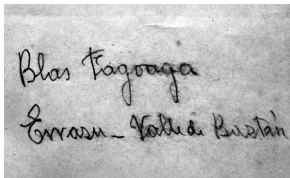 Blas Fagoaga
Errasu - Valle de Baztán